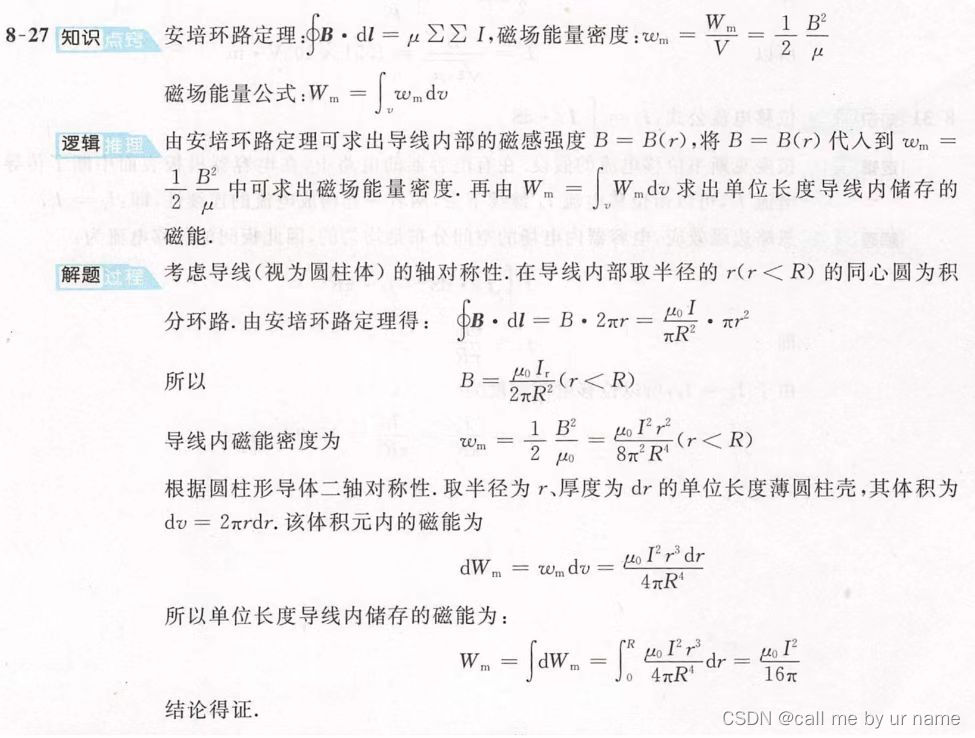 8-27 知识点窍 安培环路定理:∮B·dl = μ∑∑ I,磁场能量密度:wₘ = Wₘ/V = 1/2 B²/μ
磁场能量公式:Wₘ = ∫ᵥ wₘdv
逻辑推理 由安培环路定理可求出导线内部的磁感强度 B = B(r),将 B = B(r) 代入到 wₘ =
1/2 B²/μ 中可求出磁场能量密度. 再由 Wₘ = ∫ᵥ Wₘdv 求出单位长度导线内储存的
磁能.
解题过程 考虑导线(视为圆柱体) 的轴对称性. 在导线内部取半径的 r(r < R) 的同心圆为积
分环路. 由安培环路定理得: ∮B·dl = B·2πr = μ₀I/πR² · πr²
所以 B = μ₀Iᵣ/2πR² (r < R)
导线内磁能密度为 wₘ = 1/2 B²/μ₀ = μ₀I²r²/8π²R⁴ (r < R)
根据圆柱形导体二轴对称性. 取半径为 r、厚度为 dr 的单位长度薄圆柱壳,其体积为
dv = 2πrdr. 该体积元内的磁能为
dWₘ = wₘdv = μ₀I²r³dr/4πR⁴
所以单位长度导线内储存的磁能为:
Wₘ = ∫dWₘ = ∫₀ᴿ μ₀I²r³/4πR⁴ dr = μ₀I²/16π
结论得证.
CSDN @call me by ur name